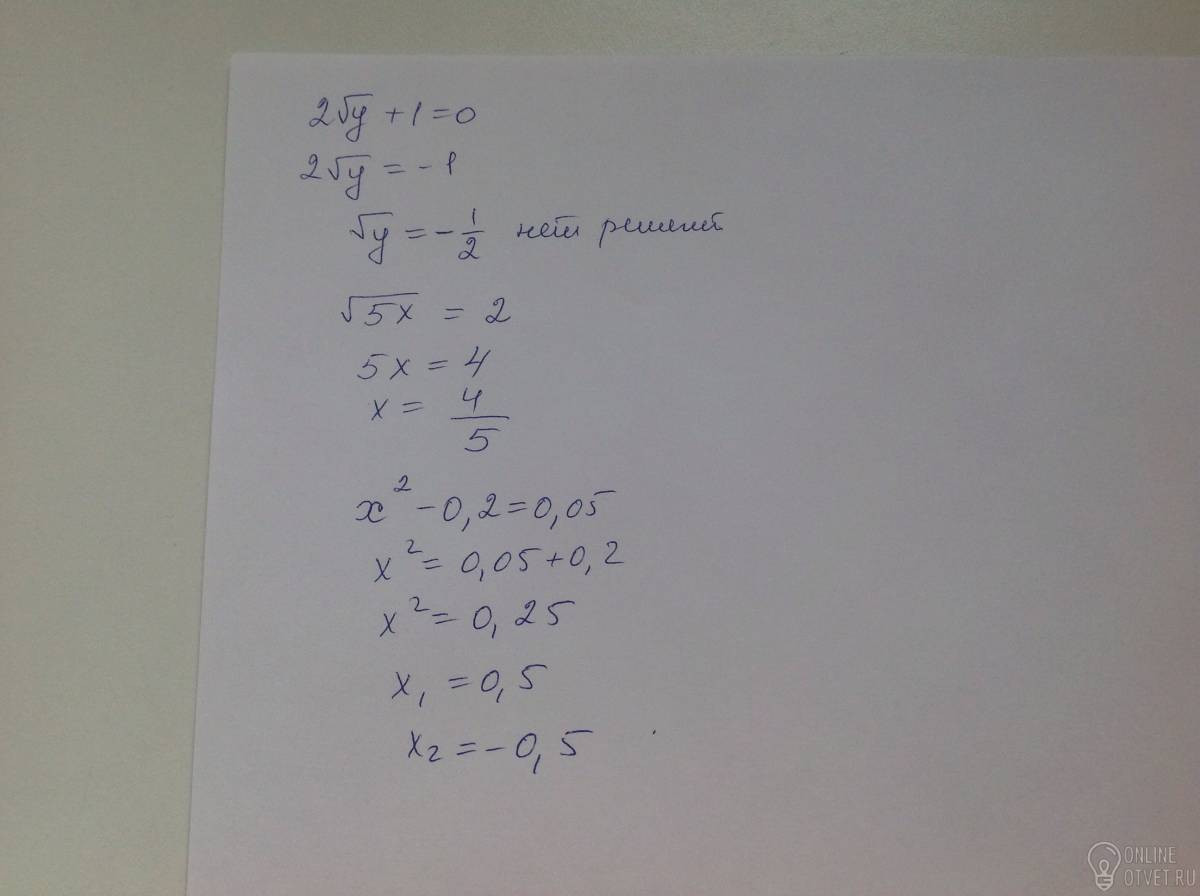 2√y + 1 = 0
2√y = - 1
√y = - 1/2 нет решений
√5x = 2
5x = 4
x = 4/5
x² - 0,2 = 0,05
x² = 0,05 + 0,2
x² = 0,25
x₁ = 0,5
x₂ = - 0,5
ONLINE
OTVET.RU